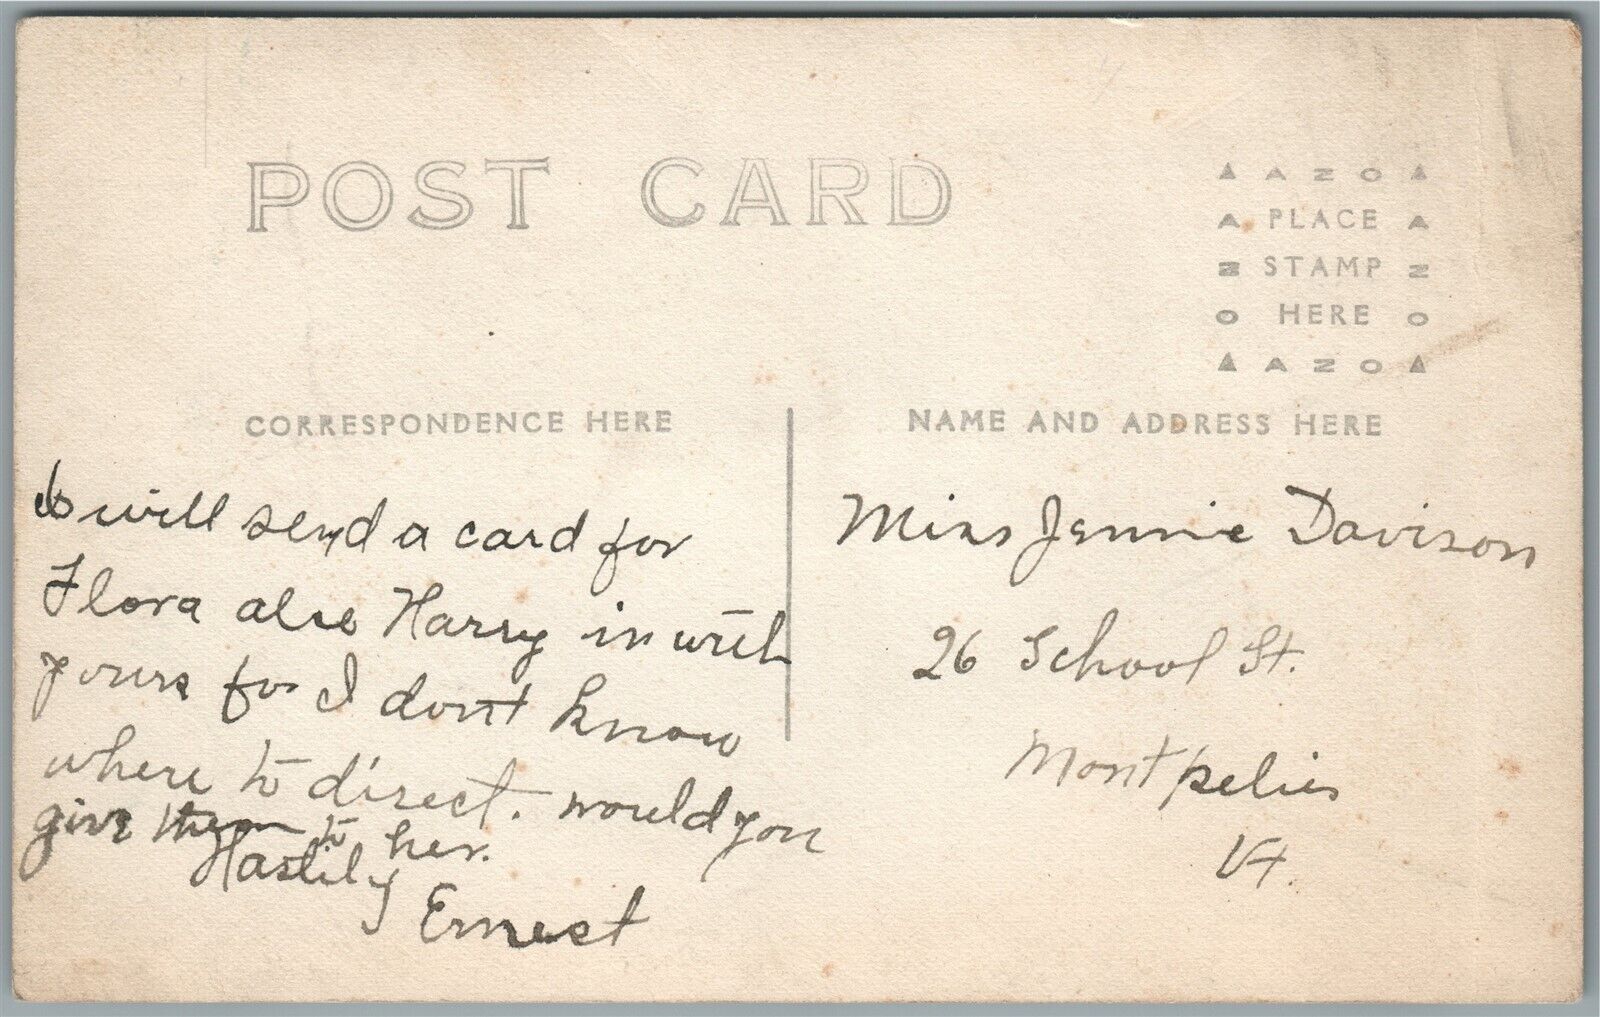 POST CARD
▲ A Z O ▲
A PLACE A
N STAMP N
O HERE O
▲ A Z O ▲
CORRESPONDENCE HERE
NAME AND ADDRESS HERE
I will send a card for
Flora also Harry in with
yours for I don't know
where to direct. would you
give them to her.
Hastily
Ernest
Miss Jennie Davison
26 School St.
Montpelier
Vt.